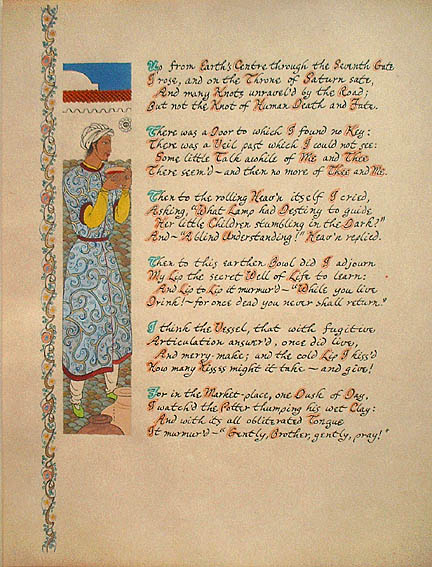 Up from Earth's Centre through the Seventh Gate
I rose, and on the Throne of Saturn sate,
And many Knots unravel'd by the Road;
But not the Knot of Human Death and Fate.
There was a Door to which I found no Key:
There was a Veil past which I could not see:
Some little Talk awhile of Me and Thee
There seem'd — and then no more of Thee and Me.
Then to the rolling Heav'n itself I cried,
Asking, "What Lamp had Destiny to guide
Her little Children stumbling in the Dark?"
And — "A blind Understanding!" Heav'n replied.
Then to this earthen Bowl did I adjourn
My Lip the secret Well of Life to learn:
And Lip to Lip it murmur'd — "While you live
Drink! — for once dead you never shall return."
I think the Vessel, that with fugitive
Articulation answer'd, once did live,
And merry-make; and the cold Lip I kiss'd
How many Kisses might it take — and give!
For in the Market-place, one Dusk of Day,
I watch'd the Potter thumping his wet Clay:
And with its all obliterated Tongue
It murmur'd — "Gently, Brother, gently, pray!"